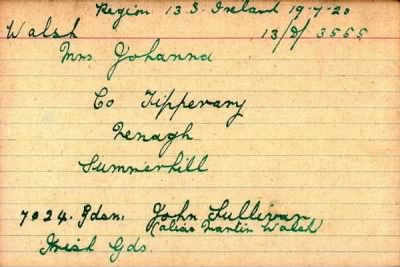 Region 13 S. Ireland 19-7-20
Walsh 13/D/3555
Mrs Johanna
Co Tipperary
Nenagh
Summerhill
7024. Gdsn. John Sullivan
(alias Martin Walsh)
Irish Gds.